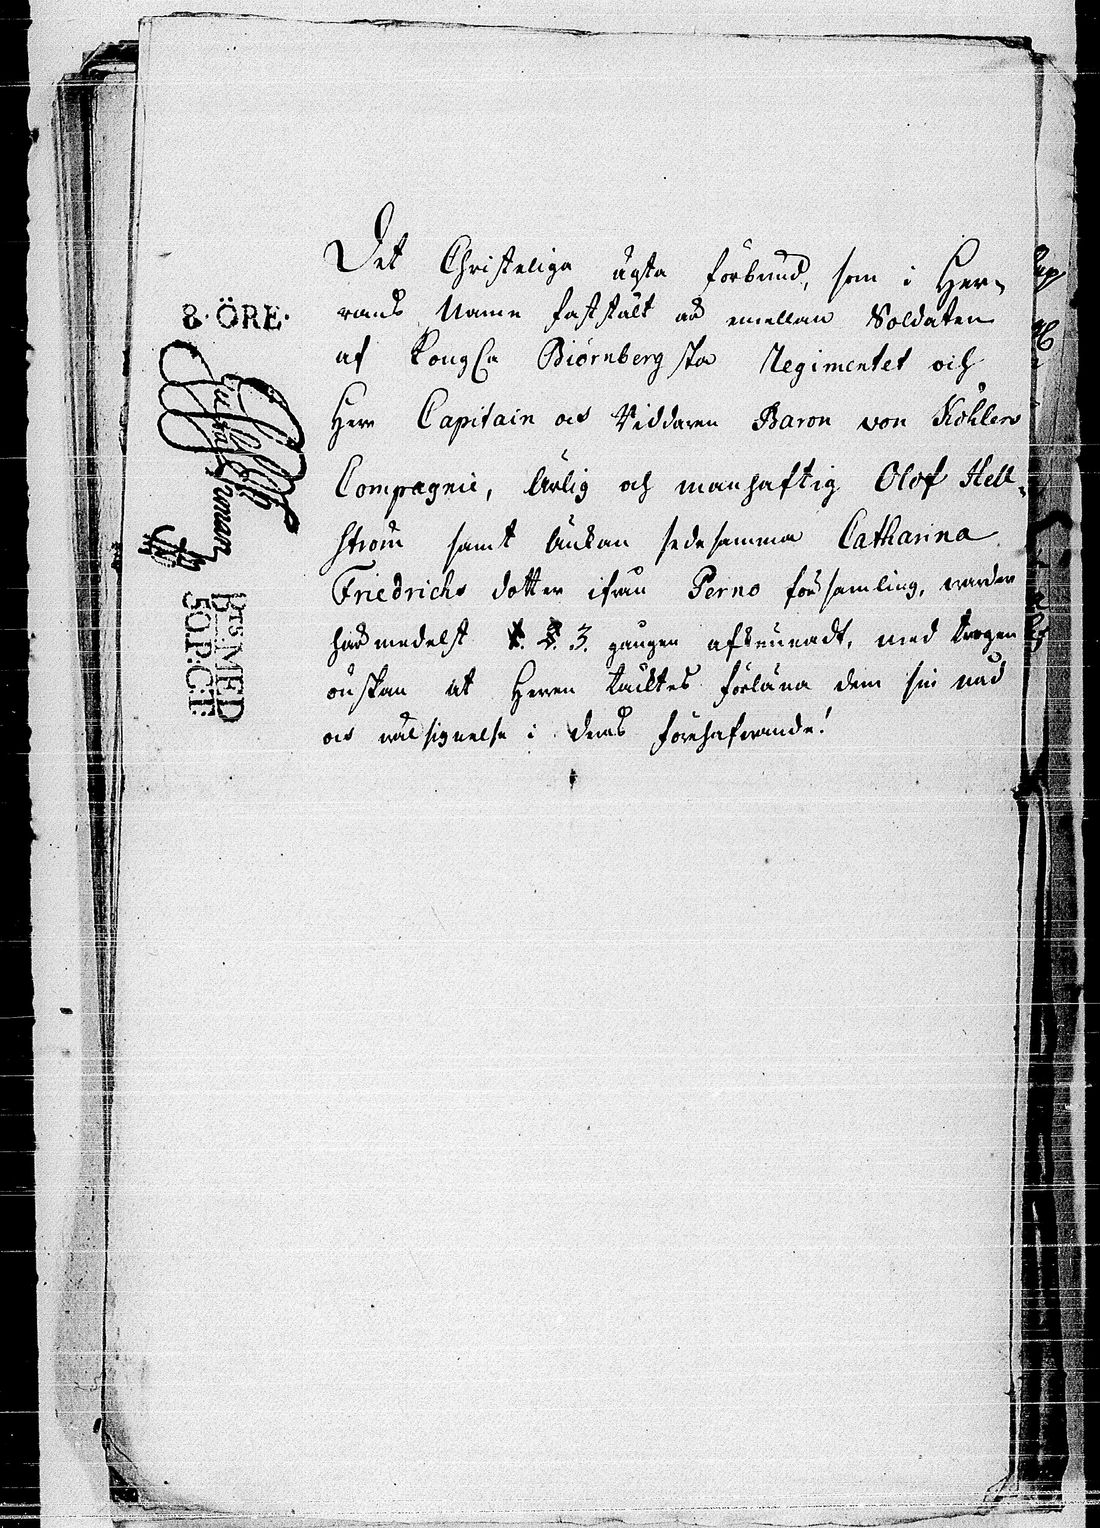 8·ÖRE·
BTS MED
50 P:CT
Det Christeliga ägta förbund, som i Her¬
rans Namn faststält är emellan Soldaten
af Kongl:a Biörnborgska Regimentet och
Herr Capitain och Riddaren Baron von Köhlers
Compagnie, ärlig och manhaftig Olof Hell¬
ström samt änkan sedesamma Catharina
Friedrichs dotter ifrån Perno församling, warder
härmedelst 3. gången afkunnadt, med trogen
önskan at Herren täcktes förläna dem sin nåd
och wälsignelse i deras förehafwande!